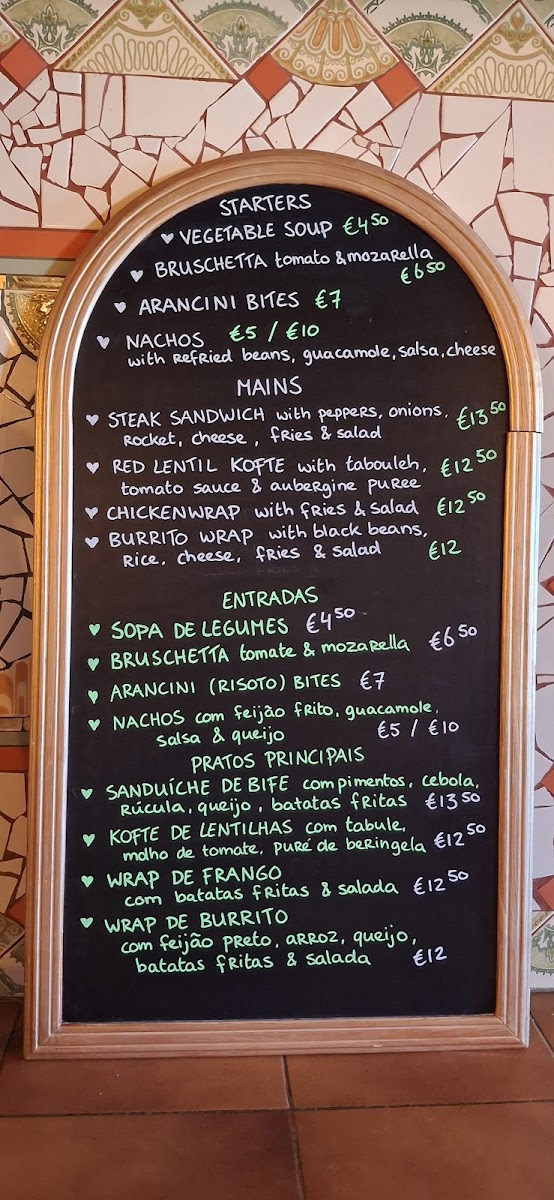 STARTERS
♥ VEGETABLE SOUP €4.50
♥ BRUSCHETTA tomato & mozaRella
€6.50
♥ ARANCINI BITES €7
♥ NACHOS €5 / €10
with Refried beans, guacamole, salsa, cheese
MAINS
♥ STEAK SANDWICH with peppers, onions, €13.50
Rocket, cheese, fRies & salad
♥ RED LENTIL KOFTE with tabouleh, €12.50
tomato sauce & aubeRgine puRee
♥ CHICKEN WRAP with fRies & salad €12.50
♥ BURRITO WRAP with black beans,
Rice, cheese, fRies & salad €12
ENTRADAS
♥ SOPA DE LEGUMES €4.50
♥ BRUSCHETTA tomate & mozaRella €6.50
♥ ARANCINI (RISOTO) BITES €7
♥ NACHOS com feijão fRito, guacamole,
salsa & queijo €5 / €10
PRATOS PRINCIPAIS
♥ SANDUÍCHE DE BIFE com pimentos, cebola,
Rúcula, queijo, batatas fRitas €13.50
♥ KOFTE DE LENTILHAS com tabule,
molho de tomate, puRé de beRingela €12.50
♥ WRAP DE FRANGO
com batatas fRitas & salada €12.50
♥ WRAP DE BURRITO
com feijão pReto, aRRoz, queijo,
batatas fRitas & salada €12